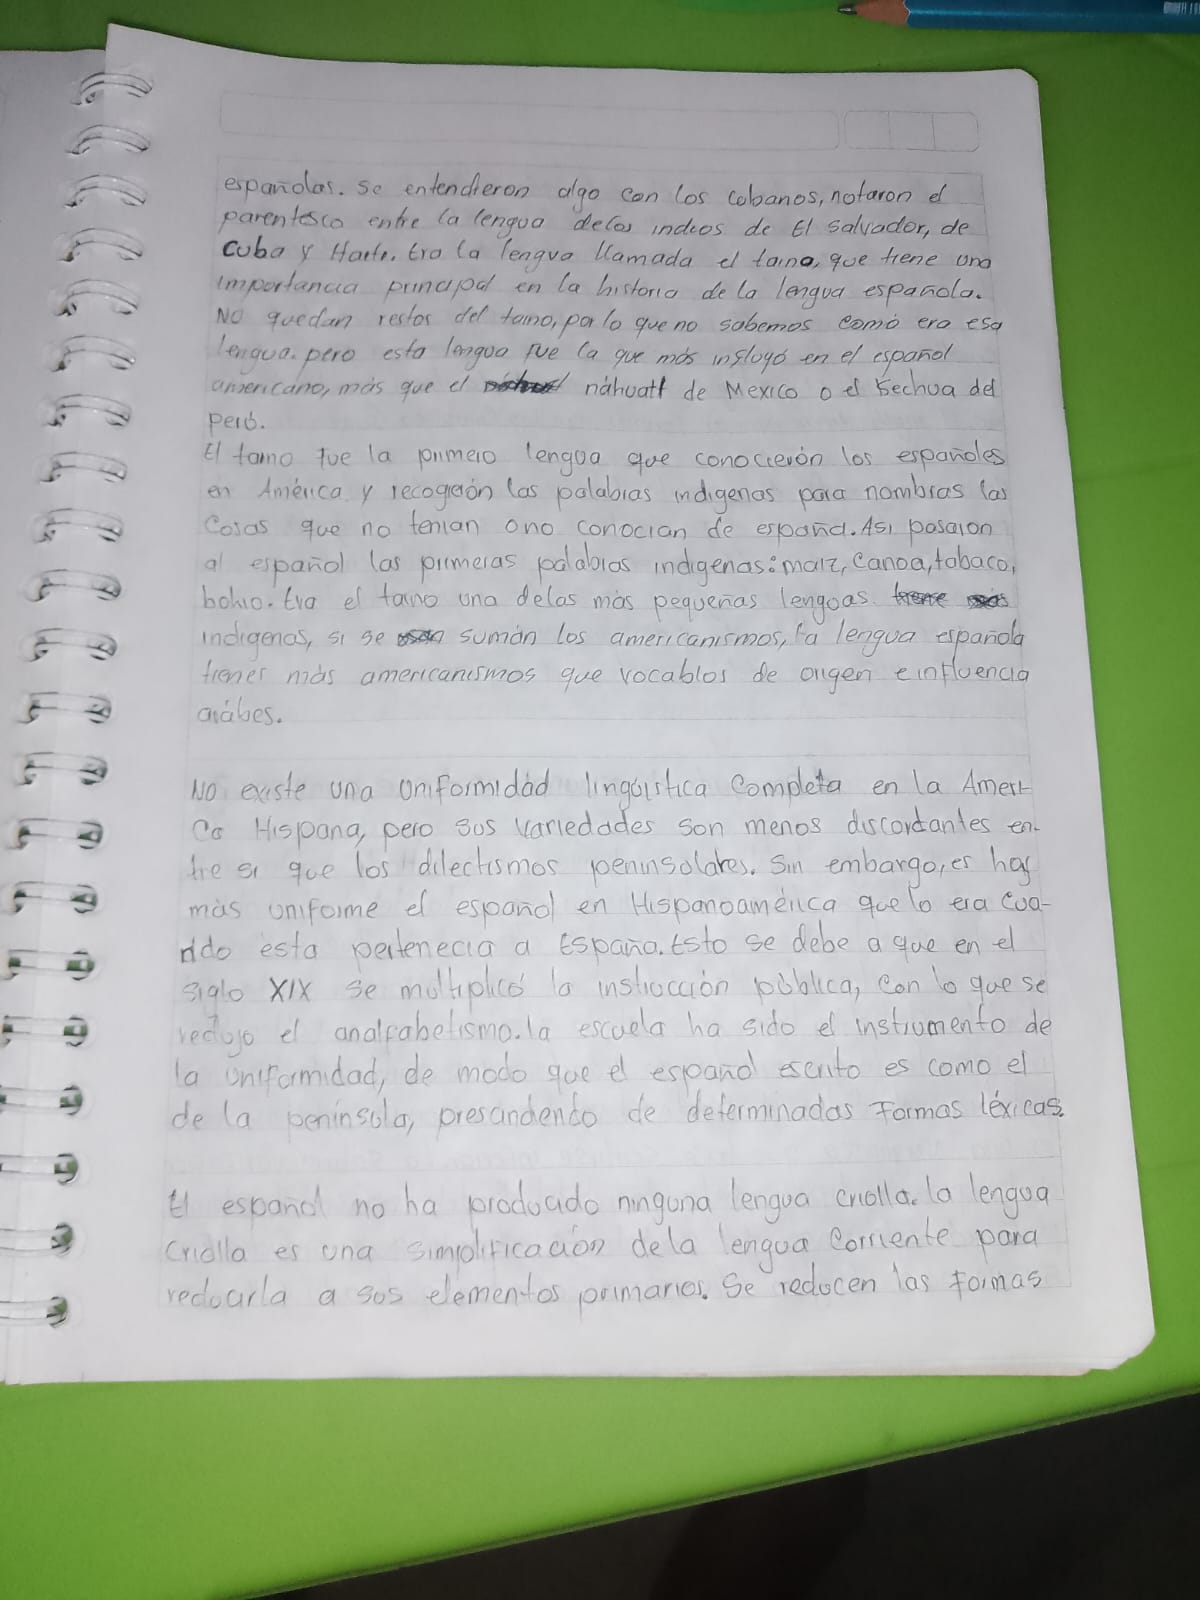 españolas. Se entendieron algo con los cubanos, notaron el
parentesco entre la lengua delos indios de El Salvador, de
Cuba y Haiti. Era la lengua llamada el taino, que tiene una
importancia principal en la historia de la lengua española.
No quedan restos del taino, por lo que no sabemos como era esa
lengua. pero esta lengua fue la que más influyó en el español
americano, más que el náhuatl de Mexico o el Kechua del
Perú.
El taino fue la primera lengua que conocierón los españoles
en América y recogierón las palabras indigenas para nombras las
Cosas que no tenian ono conocian de españa. Asi pasaron
al español las primeras palabras indigenas: maiz, Canoa, tabaco,
bohio. Era el taino una delas más pequeñas lenguas
indigenas, si se sumán los americanismos, la lengua española
tienes más americanismos que vocablos de origen e influencia
arábes.
No existe una Uniformidád lingüistica Completa en la Ameri-
Ca Hispana, pero sus variedades son menos discordantes en-
tre si que los dilectismos peninsulares. Sin embargo, es hay
más uniforme el español en Hispanoamérica quelo era Cua-
ndo esta pertenecia a España. Esto se debe a que en el
siglo XIX se multiplicó la instrucción pública, Con lo que se
redujo el analfabetismo. la escuela ha sido el instrumento de
la Uniformidad, de modo que el español escrito es como el
de la peninsula, prescindendo de determinadas Formas léxicas.
El español no ha producido ninguna lengua criolla. la lengua
Criolla es una simplificación dela lengua Corriente para
reducirla a sus elementos primarios. Se reducen las Formas